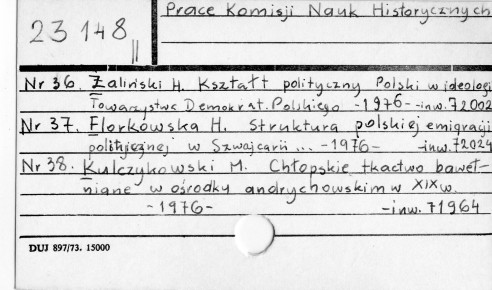 Prace Komisji Nauk Historycznych
23148 II
Nr 36. Żaliński H. Kształt polityczny Polski w ideologi
Towarzystwa Demokrat. Polskiego -1976- -inw. 72002
Nr 37. Florkowska H. Struktura polskiej emigracji
politycznej w Szwajcarii ... -1976- -inw. 72024
Nr 38. Kulczykowski M. Chłopskie tkactwo baweł-
niane w ośrodku andrychowskim w XIX w.
-1976- -inw. 71964
DUJ 897/73. 15000